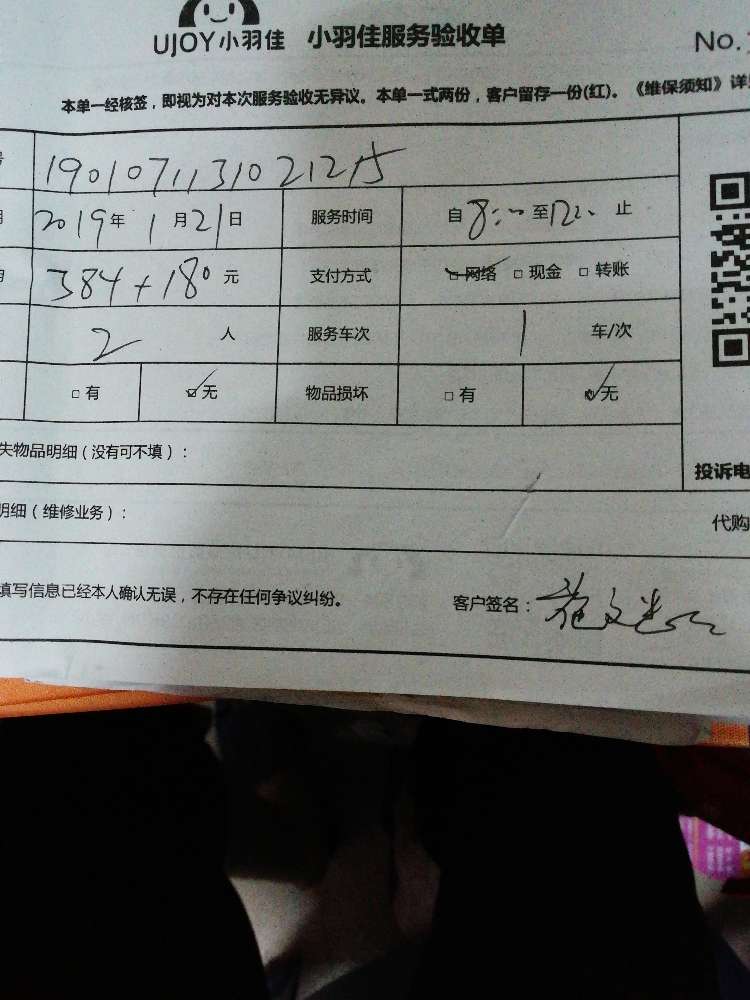 UJOY小羽佳 小羽佳服务验收单 No.
本单一经核签，即视为对本次服务验收无异议。本单一式两份，客户留存一份(红)。《维保须知》详
号 1901071131021215
2019年 1月21日 服务时间 自8:00至12:00止
384+180元 支付方式 网络 现金 转账
2人 服务车次 1车/次
有 无 物品损坏 有 无
失物品明细（没有可不填）：
投诉电
明细（维修业务）：
代购
填写信息已经本人确认无误，不存在任何争议纠纷。 客户签名：